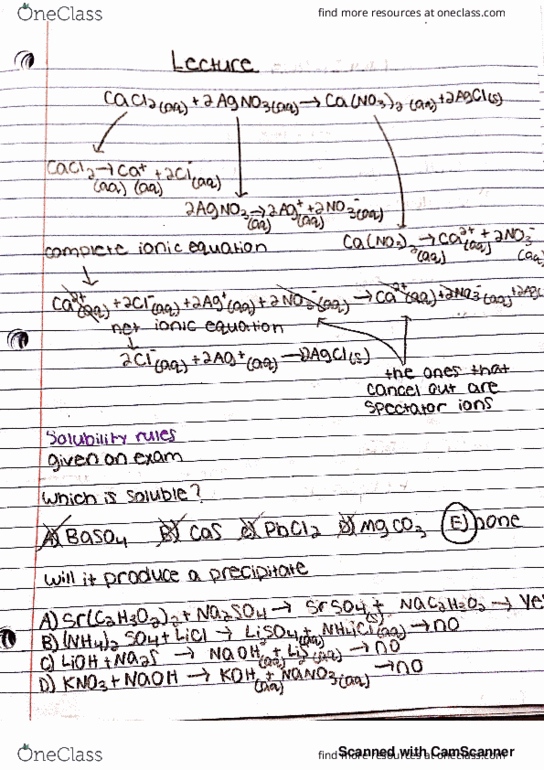 OneClass
find more resources at oneclass.com
Lecture
CaCl2(aq) + 2AgNO3(aq) → Ca(NO3)2 (aq) + 2AgCl(s)
CaCl2 → Ca+ + 2Cl-(aq)
(aq) (aq)
2AgNO3 → 2Ag+ + 2NO3-(aq)
(aq) (aq)
complete ionic equation
Ca(NO3)2 → Ca2+ + 2NO3-
(aq) (aq) (aq)
Ca2+(aq) + 2Cl-(aq) + 2Ag+(aq) + 2NO3-(aq) → Ca2+(aq) + 2NO3-(aq) + 2AgCl
net ionic equation
2Cl-(aq) + 2Ag+(aq) → 2AgCl(s)
the ones that
cancel out are
spectator ions
Solubility rules
given on exam
which is soluble?
A) BaSO4 B) CaS C) PbCl2 D) MgCO3 E) none
will it produce a precipitate
A) Sr(C2H3O2)2 + Na2SO4 → SrSO4(s) + NaC2H2O2 → Yes
B) (NH4)2SO4 + LiCl → Li2SO4(aq) + NH4Cl(aq) → no
C) LiOH + Na2S → NaOH(aq) + LiS(aq) → no
D) KNO3 + NaOH → KOH(aq) + NaNO3(aq) → no
OneClass
find more resources at oneclass.com
Scanned with CamScanner